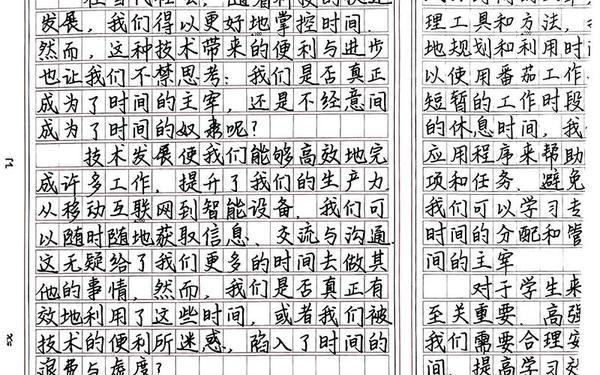 在当代社会，随着科技的快速
发展，我们得以更好地掌控时间.
然而，这种技术带来的便利与进步
也让我们不禁思考：我们是否真正
成为了时间的主宰，还是不经意间
成为了时间的奴隶呢？
技术发展使我们能够高效地完
成许多工作，提升了我们的生产力.
从移动互联网到智能设备，我们可
以随时随地获取信息、交流与沟通.
这无疑给了我们更多的时间去做其
他的事情，然而，我们是否真正有
效地利用了这些时间，或者我们被
技术的便利所迷惑，陷入了时间的
浪费与虚度？
理工具和方法，
地规划和利用时间
以使用番茄工作
短暂的工作时段
的休息时间，我
应用程序来帮助
项和任务、避免
我们可以学习专
时间的分配和管
间的主宰
对于学生来
至关重要．高强
我们需要合理安
间，提高学习效